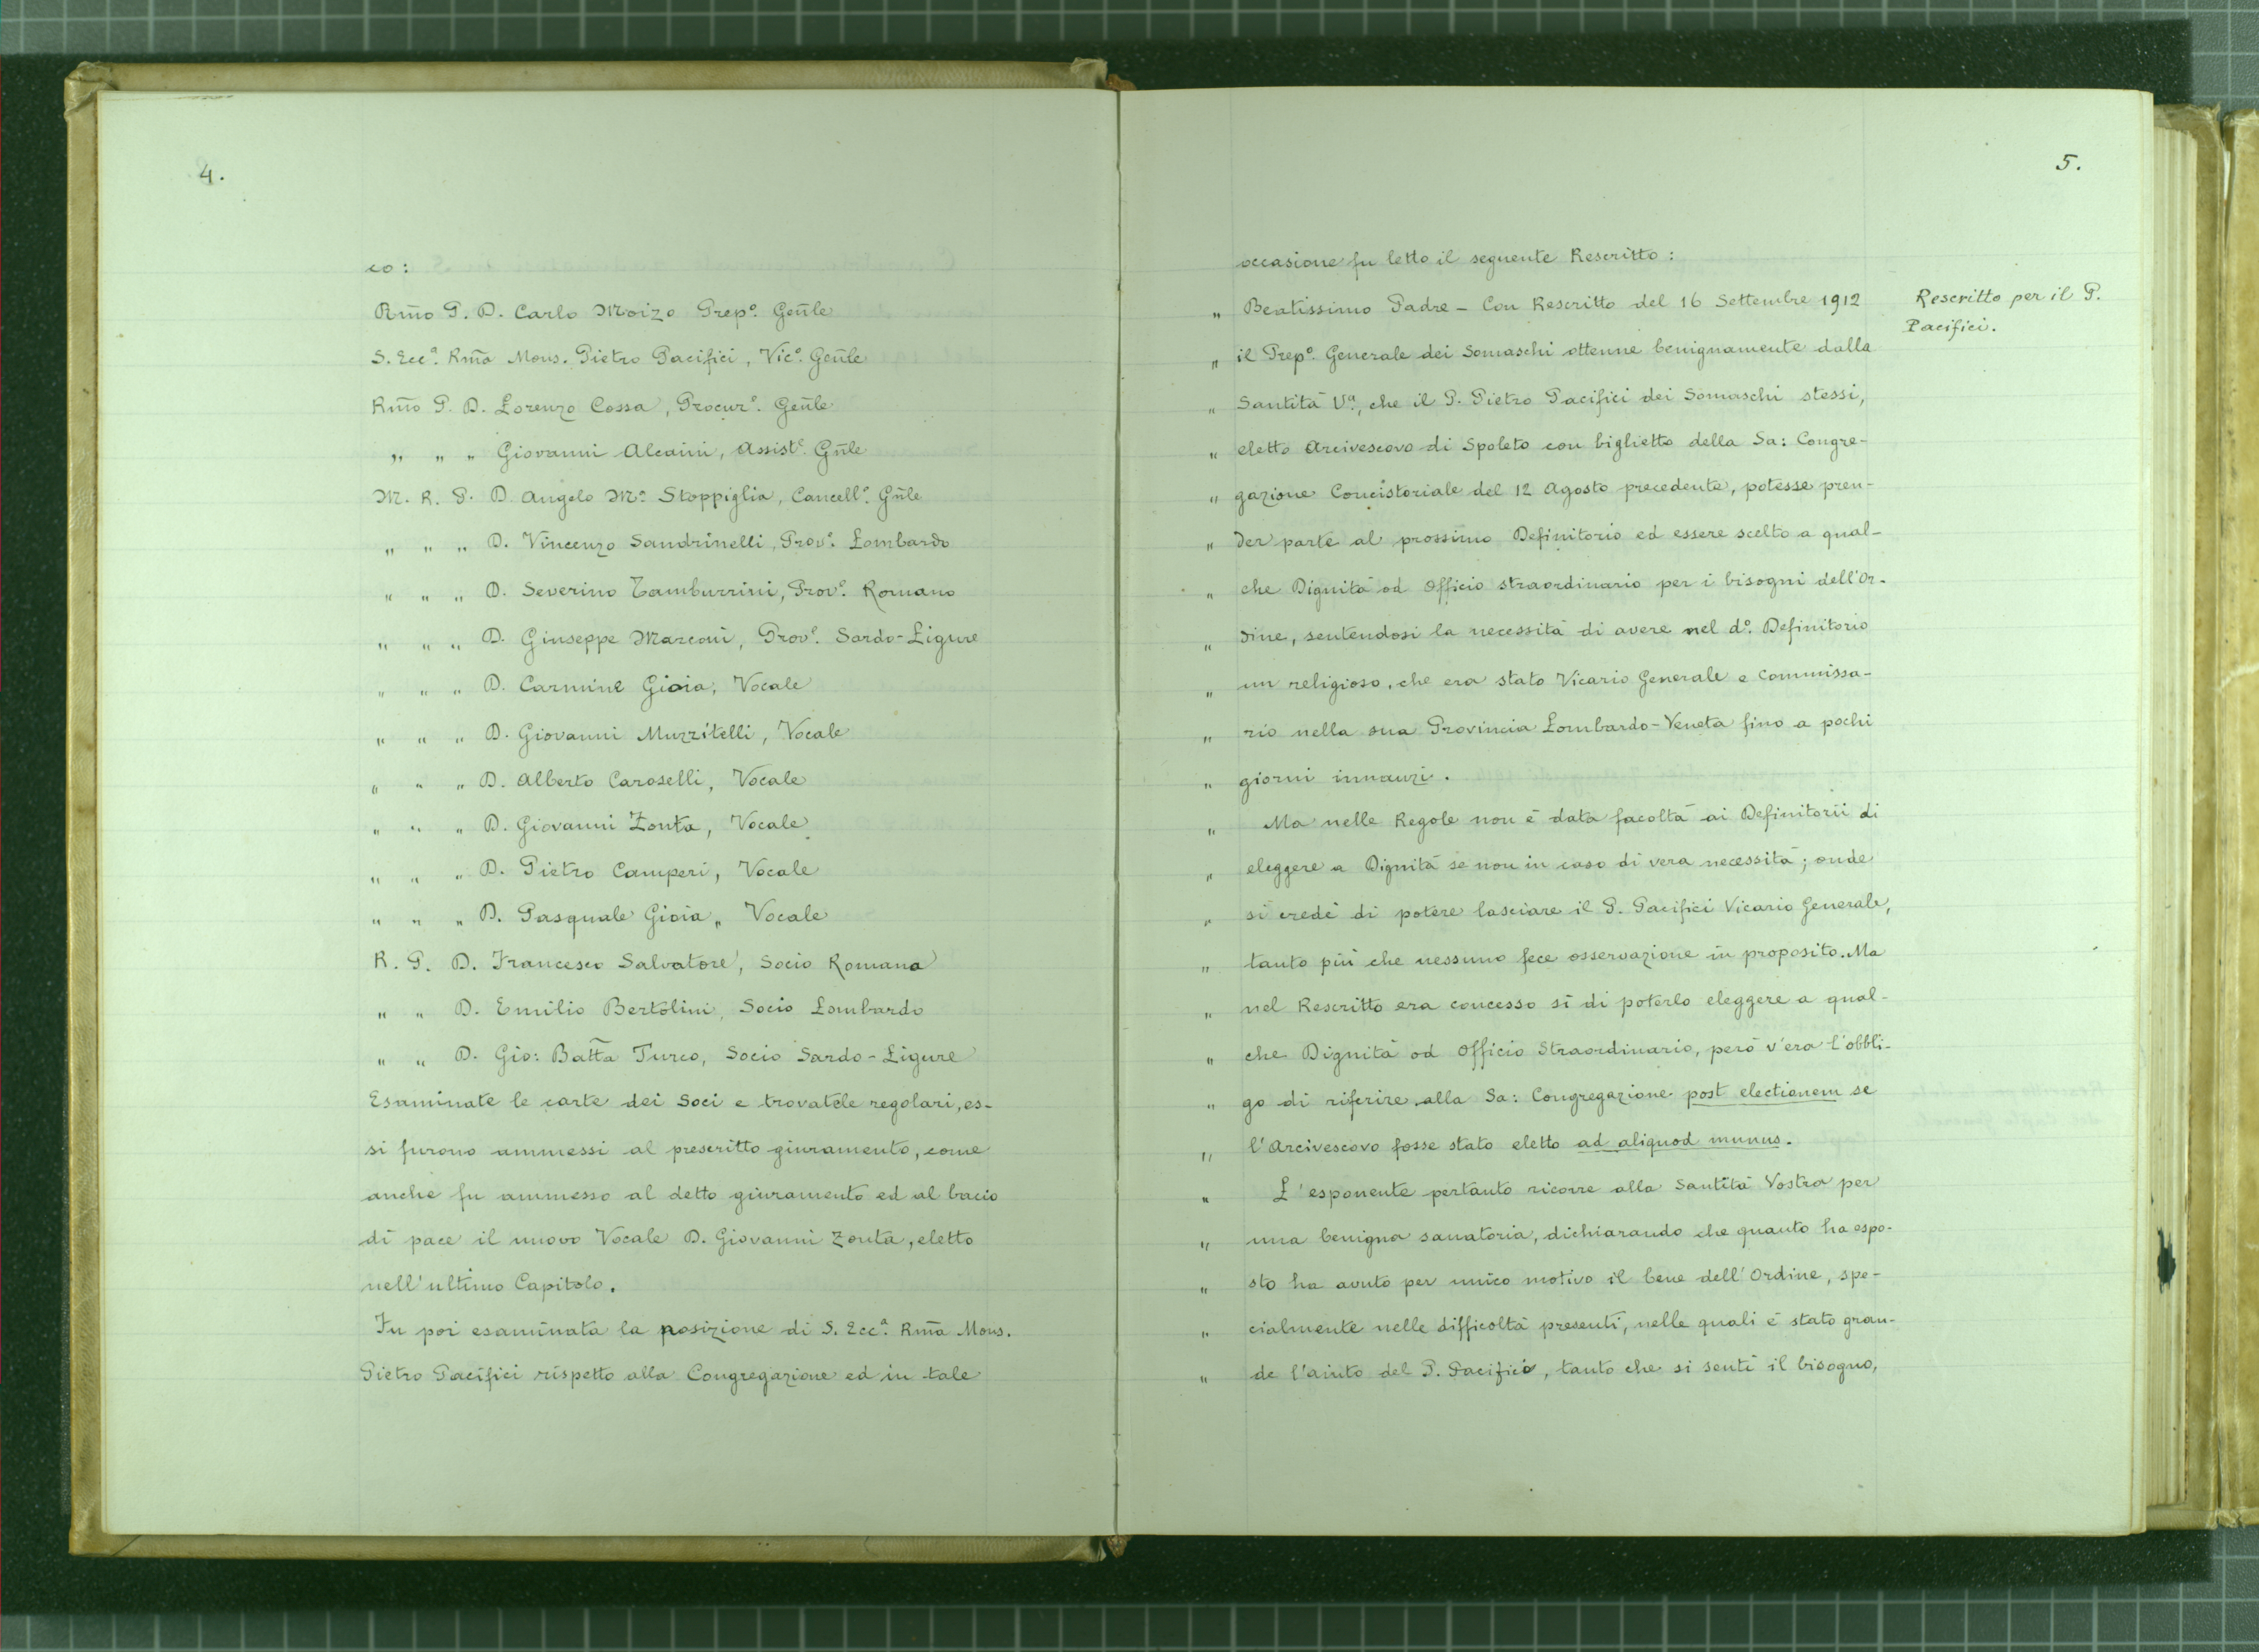 4.
co:
Rm̄o P. D. Carlo Moizo Prep.º Gen̄le
S. Ecc.ª Rm̄a Mons. Pietro Pacifici, Vic.º Gen̄le
Rm̄o P. D. Lorenzo Cossa, Procur.º Gen̄le
„ „ „ Giovanni Alcaini, Assist.e Gn̄le
M. R. P. D. Angelo M.ª Stoppiglia, Cancell.e Gn̄le
„ „ „ D. Vincenzo Sandrinelli, Prov.e Lombardo
„ „ „ D. Severino Tamburrini, Prov.e Romano
„ „ „ D. Giuseppe Marconi, Prov.e Sardo-Ligure
„ „ „ D. Carmine Gioia, Vocale
„ „ „ D. Giovanni Muzzitelli, Vocale
„ „ „ D. Alberto Caroselli, Vocale
„ „ „ D. Giovanni Zonta, Vocale
„ „ „ D. Pietro Camperi, Vocale
„ „ „ D. Pasquale Gioia „ Vocale
R. P. D. Francesco Salvatore, Socio Romano
„ „ D. Emilio Bertolini, Socio Lombardo
„ „ D. Gio: Batt̄a Turco, Socio Sardo-Ligure
Esaminate le carte dei Soci e trovatele regolari, es-
si furono ammessi al prescritto giuramento, come
anche fu ammesso al detto giuramento ed al bacio
di pace il nuovo Vocale D. Giovanni Zonta, eletto
nell'ultimo Capitolo.
Fu poi esaminata la posizione di S. Ecc.ª Rm̄a Mons.
Pietro Pacifici rispetto alla Congregazione ed in tale
5.
occasione fu letto il seguente Rescritto:
Rescritto per il P.
Pacifici.
„ Beatissimo Padre - Con Rescritto del 16 Settembre 1912
„ il Prep.º Generale dei Somaschi ottenne benignamente dalla
„ Santità V.ª, che il P. Pietro Pacifici dei Somaschi stessi,
„ eletto Arcivescovo di Spoleto con biglietto della Sa: Congre-
„ gazione Concistoriale del 12 Agosto precedente, potesse pren-
„ der parte al prossimo Definitorio ed essere scelto a qual-
„ che Dignità od Officio straordinario per i bisogni dell'Or-
„ dine, sentendosi la necessità di avere nel d.º Definitorio
„ un religioso, che era stato Vicario Generale e Commissa-
„ rio nella sua Provincia Lombardo-Veneta fino a pochi
„ giorni innanzi.
„ Ma nelle Regole non è data facoltà ai Definitorii di
„ eleggere a Dignità se non in caso di vera necessità; onde
„ si credè di potere lasciare il P. Pacifici Vicario Generale,
„ tanto più che nessuno fece osservazione in proposito. Ma
„ nel Rescritto era concesso sì di poterlo eleggere a qual-
„ che Dignità od Officio Straordinario, però v'era l'obbli-
„ go di riferire alla Sa: Congregazione post electionem se
„ l'Arcivescovo fosse stato eletto ad aliquod munus.
„ L'esponente pertanto ricorre alla Santità Vostra per
„ una benigna sanatoria, dichiarando che quanto ha espo-
„ sto ha avuto per unico motivo il bene dell'Ordine, spe-
„ cialmente nelle difficoltà presenti, nelle quali è stato gran-
„ de l'aiuto del P. Pacifici, tanto che si sentì il bisogno,